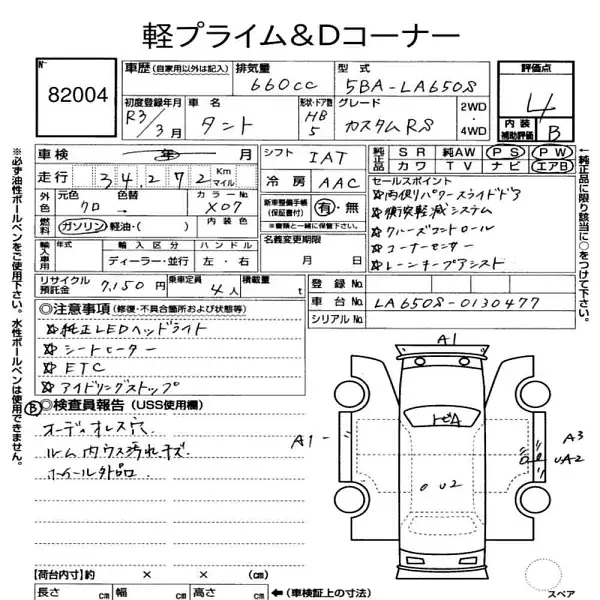 軽プライム&Dコーナー
N-
82004
車歴(自家用以外は記入)
排気量
660cc
型式
5BA-LA650S
評価点
4
初度登録年月
R3/3月
車名
タント
形状・ドア数
HB
5
グレード
カスタムRS
2WD
・
4WD
内装
補助評価
B
車検
年
月
シフト
IAT
純正品
SR
純AW
PS
PW
カワ
TV
ナビ
エアB
走行
34,272
Km
マイル
冷房
AAC
セールスポイント
☆両側パワースライドドア
☆衝突軽減システム
☆クルーズコントロール
☆コーナーセンサー
☆レーンキープアシスト
外色
元色
クロ
色替
カラーNo
X07
新車整備手帳
(保証書付)
有・無
※書類と一緒に保管下さい。
燃料
ガソリン・軽油・( )
内装色
名義変更期限
月 日
輸入車用
年式
輸入区分
ディーラー・並行
ハンドル
左・右
リサイクル預託金
7,150円
乗車定員
4人
積載量
t
登録No.
車台No.
LA650S-0130477
シリアルNo.
◎注意事項(修復・不具合箇所および状態等)
☆純正LEDヘッドライト
☆シートヒーター
☆ETC
☆アイドリングストップ
B
◎検査員報告(USS使用欄)
オーディオレス穴
ルーム内ウス汚れキズ
ホイール外品
A1
トビA
A1
A3
UA2
U2
【荷台内寸】約 × × (cm)
長さ cm
幅 cm
高さ cm
←(車検証上の寸法)
スペア
※必ず油性ボールペンをご使用下さい。水性ボールペンは使用できません。
←純正品に限り該当に○をつけて下さい。